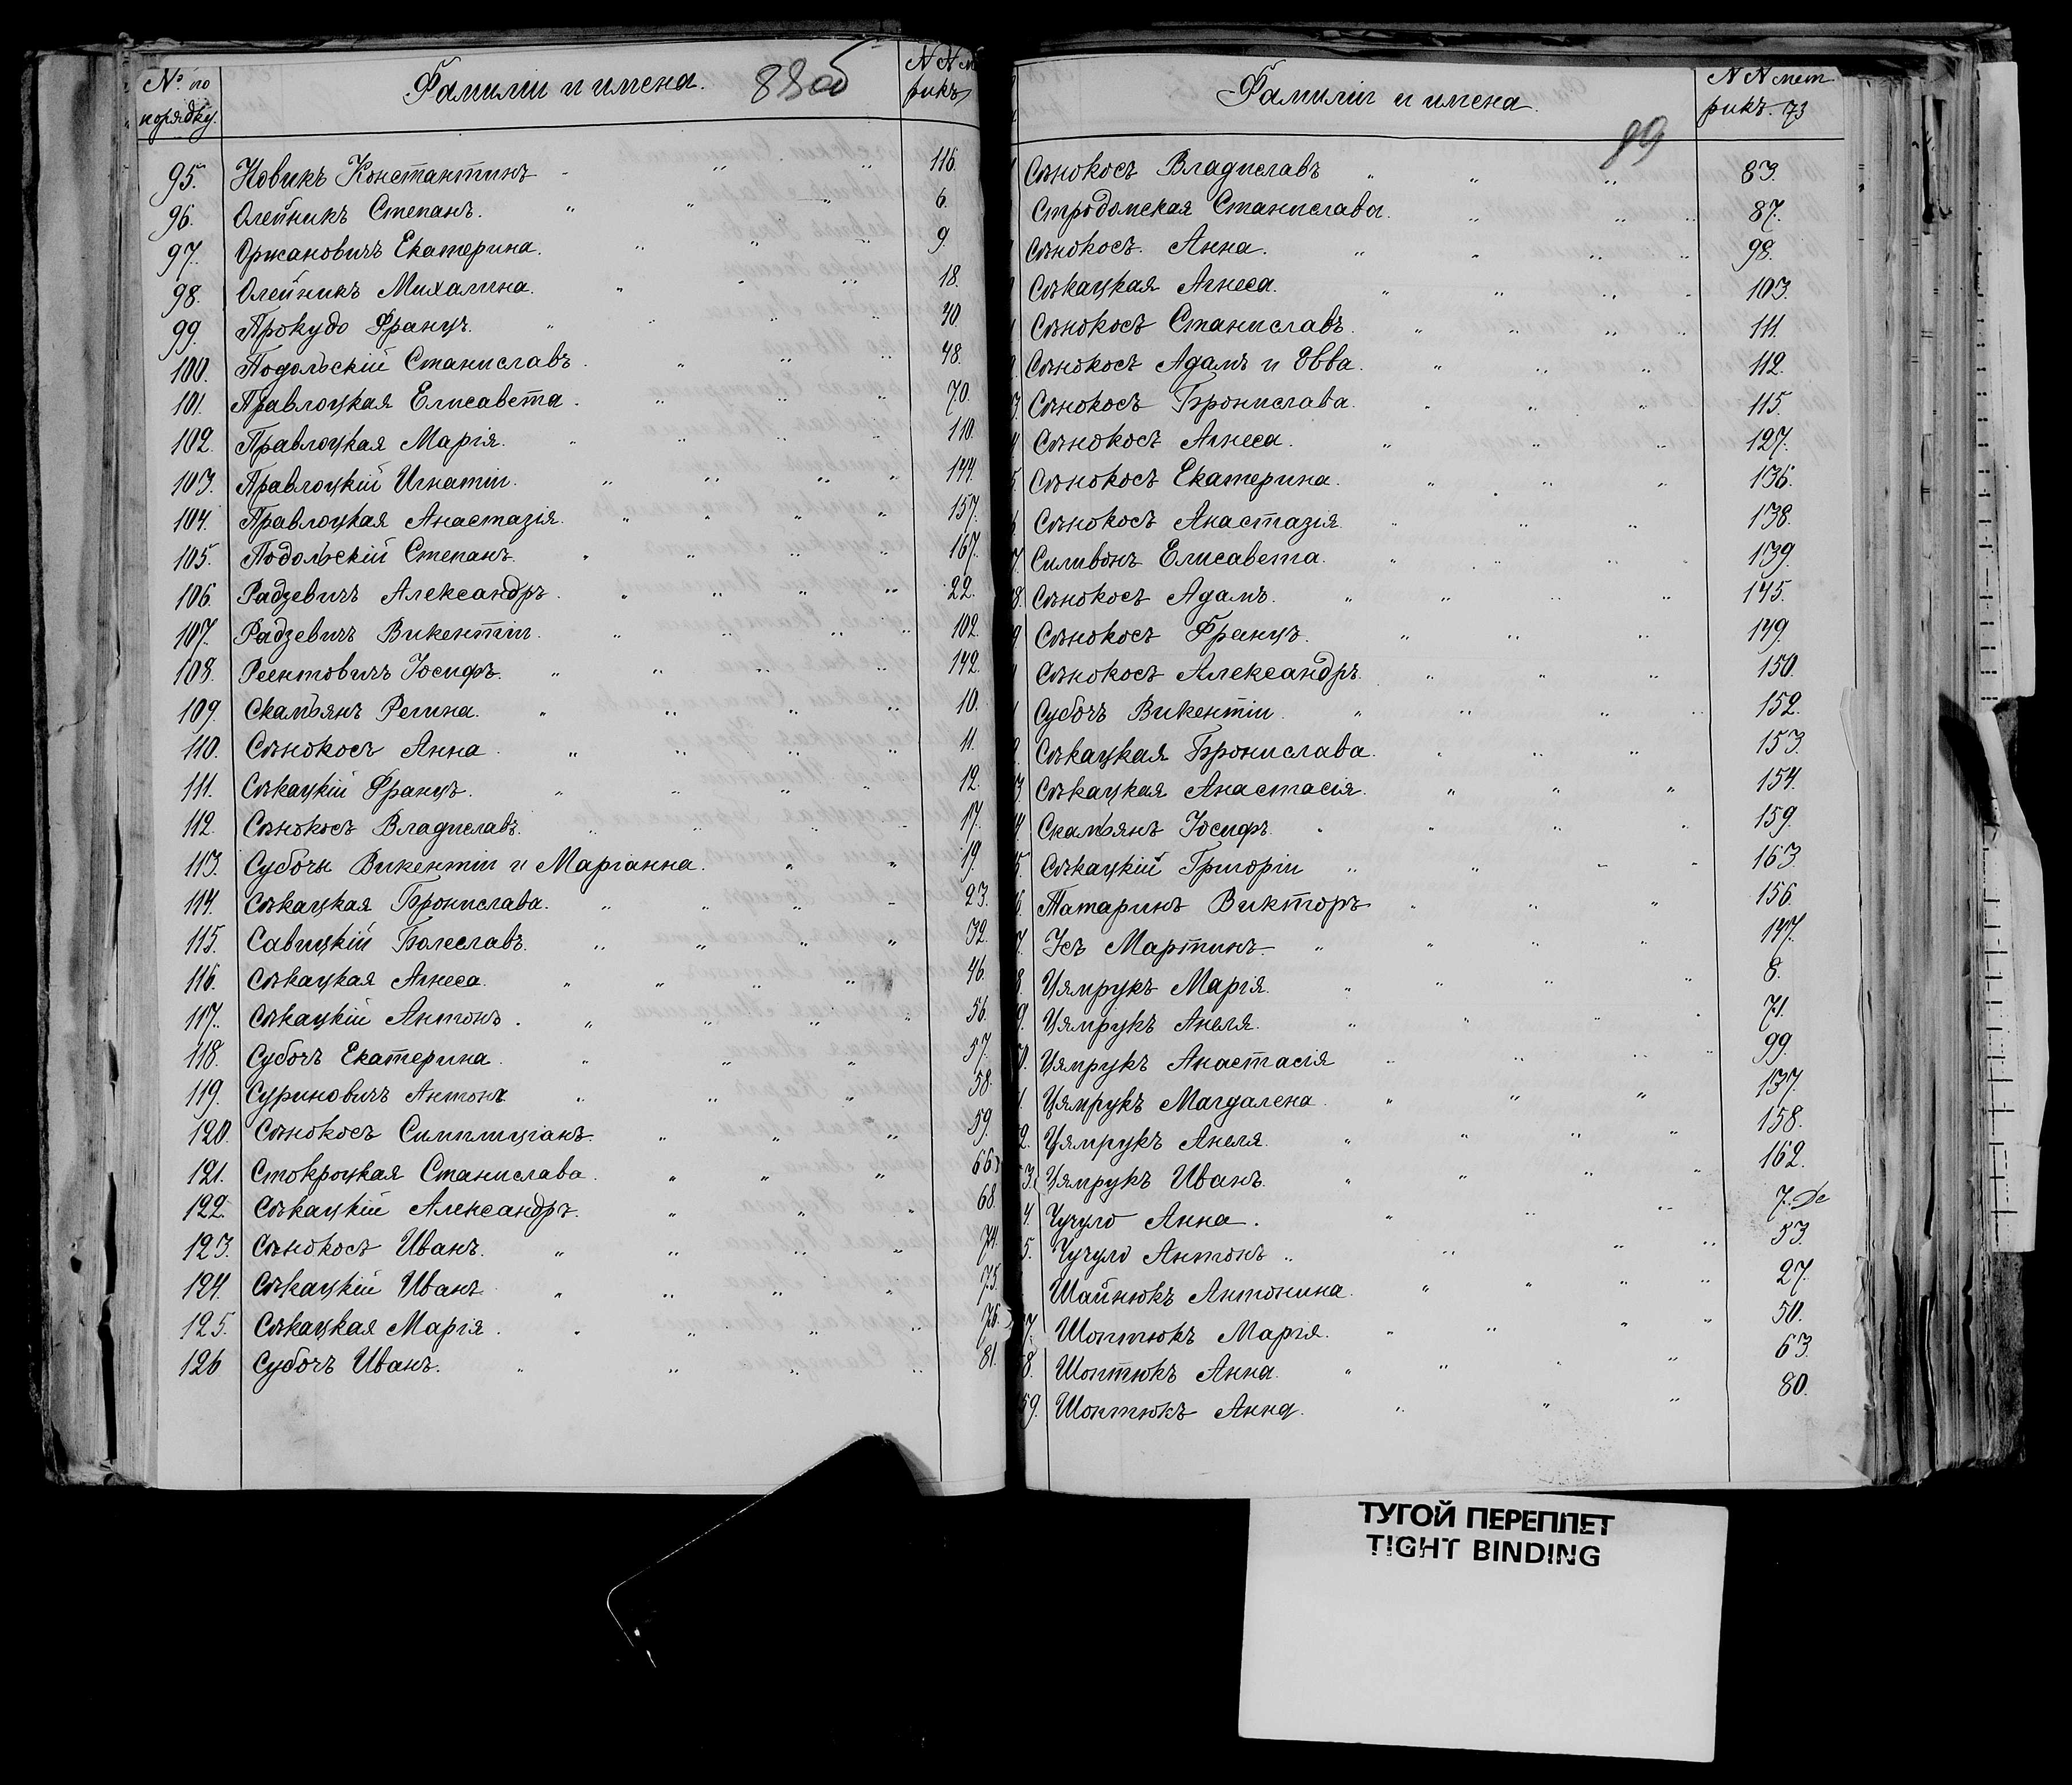 № по порядку.
Фамиліи и имена.
88об
N N м
рикъ
95. Новикъ Константинъ 116.
96. Олейникъ Степанъ. 6.
97. Оржановичъ Екатерина. 9.
98. Олейникъ Михалина. 18.
99. Прокудо Францъ. 40.
100. Подольскій Станиславъ. 48.
101. Правлоцкая Елисавета. 70.
102. Правлоцкая Марія. 110.
103. Правлоцкій Игнатіи. 144.
104. Правлоцкая Анастазія. 157.
105. Подольскій Степанъ. 167.
106. Радзевичъ Александръ. 22.
107. Радзевичъ Викентіи. 102.
108. Реентовичъ Іосифъ. 142.
109. Скамьянъ Регина. 10.
110. Сѣнокосъ Анна. 11.
111. Сѣкацкіи Францъ. 12.
112. Сѣнокосъ Владиславъ. 17.
113. Субочи Викентіи и Маріанна. 19.
114. Сѣкацкая Бронислава. 23.
115. Савицкій Болеславъ. 32.
116. Сѣкацкая Агнеса. 46.
117. Сѣкацкіи Антонъ. 56.
118. Субочъ Екатерина. 57.
119. Суриновичъ Антонъ 58.
120. Сѣнокосъ Симплиціанъ. 59.
121. Стокроцкая Станислава. 66.
122. Сѣкацкій Александръ. 68.
123. Сѣнокосъ Иванъ. 74.
124. Сѣкацкій Иванъ. 75.
125. Сѣкацкая Марія. 76.
126 Субочъ Иванъ. 81.
Фамиліи и имена.
89
N N мет
рикъ. 73
Сѣнокосъ Владиславъ 83.
Стродомская Станислава. 87.
Сѣнокосъ. Анна. 98.
Сѣкацкая Агнеса. 103.
Сѣнокосъ Станиславъ. 111.
Сѣнокосъ Адамъ и Евва. 112.
3. Сѣнокосъ Бронислава. 115.
4 Сѣнокосъ Агнеса. 127.
5. Сѣнокосъ Екатерина. 136.
Сѣнокосъ Анастазія. 138.
7. Силивонъ Елисавета. 139.
8. Сѣнокосъ Адамъ. 145.
9 Сѣнокосъ Францъ. 149.
Сѣнокосъ Александръ. 150.
Субочъ Викентіи. 152.
Сѣкацкая Бронислава. 153.
3. Сѣкацкая Анастасія. 154.
4 Скамьянъ Іосифъ. 159.
5. Сѣкацкій Григоріи 163.
6. Татаринъ Викторъ 156.
7. Усъ Мартинъ 147.
8. Цямрукъ Марія. 8.
9. Цямрукъ Анеля. 71.
0. Цямрукъ Анастасія 99.
1. Цямрукъ Магдалена. 137.
2. Цямрукъ Анеля. 158.
3. Цямрукъ Иванъ. 162.
4. Чучуло Анна. 7.
5. Чучуло Антонъ 53.
Шайнюкъ Антонина. 27.
7. Шоптюкъ Марія. 50.
8. Шоптюкъ Анна. 63.
59. Шоптюкъ Анна. 80.
ТУГОЙ ПЕРЕПЛЕТ
TIGHT BINDING